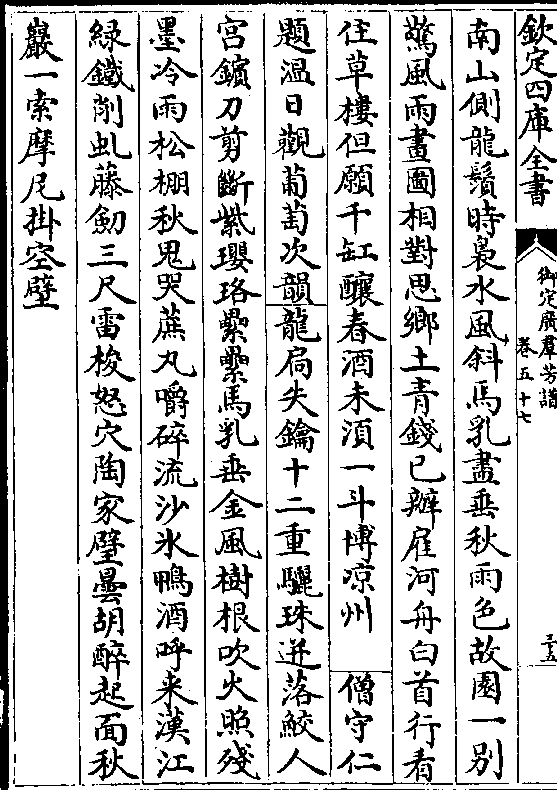 欽定四庫全書
御定廣羣芳譜
卷五十七
三五
南山側龍鬚時裊水風斜馬乳盡垂秋雨色故園一别
驚風雨畫圖相對思鄉土青錢已辦雇河舟白首行看
住草樓但願千缸釀春酒未須一斗博凉州　僧守仁
題温日觀葡萄次韻龍扃失鑰十二重驪珠迸落鮫人
宫鑌刀剪斷紫瓔珞纍纍馬乳垂金風樹根吹火照殘
墨冷雨松棚秋鬼哭蔗丸嚼碎流沙氷鴨酒呼来漢江
緑鐵削虬藤劒三尺雷梭怒穴陶家壁曇胡醉起面秋
巖一索摩尼掛空壁